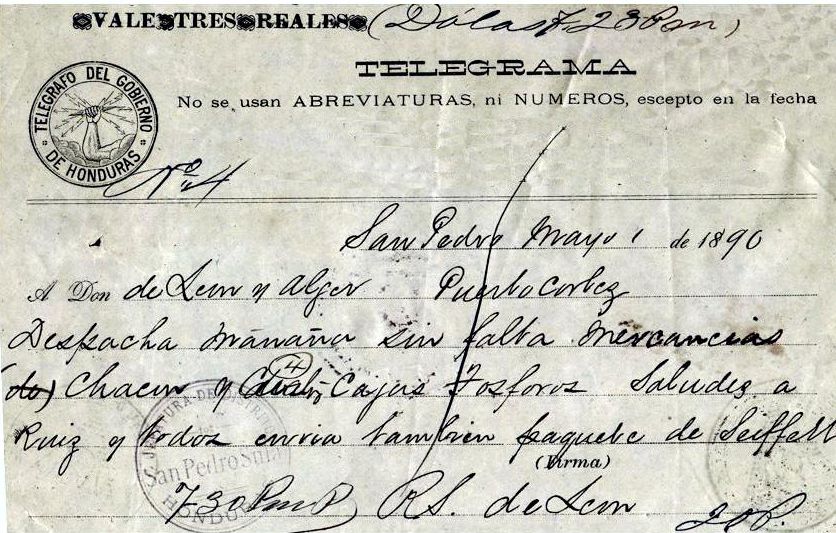 VALE TRES REALES (Dólas 7.23 Pm)
TELEGRAMA
No se usan ABREVIATURAS, ni NUMEROS, escepto en la fecha
TELEGRAFO DEL GOBIERNO DE HONDURAS
No 4
San Pedro Mayo 1 de 1890
A Don de Leon y Alger Puerto Cortez
Despacha mañana sin falta mercancias
(do) Chacon y 4 Cajas Fosforos Saludes a
Ruiz y todos envia tambien paquete de Seiffert
(Firma)
JEFATURA DE DISTRITO
San Pedro Sula
HONDURAS
730 Pm P R.S. de Leon 20P.